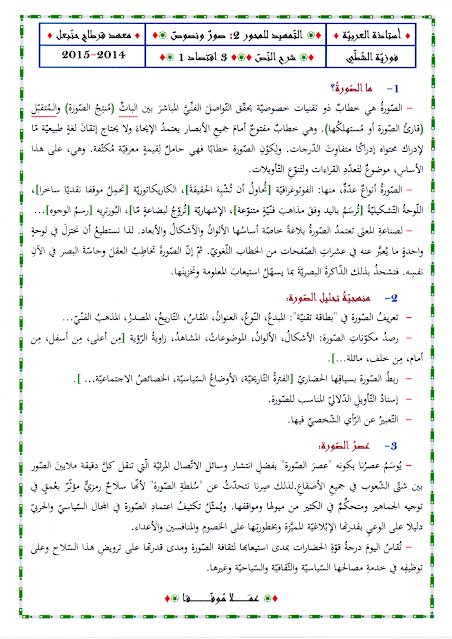 أستاذة العربيّة
التمهيد للمحور 2: صور ونصوص
معهد قرطاج حنبعل
فوزيّة الشّطّي
شرح النّصّ
3 اقتصاد 1
2014-2015
1- ما الصّورة؟
– الصّورةُ هي خطابٌ ذو تقنيات خصوصيّة يحقّق التّواصلَ الفنّيَّ المباشرَ بين الباثّ (مُنتِجُ الصّورة) والمُتقبّل
(قارئُ الصّورة أو مُستهلكُها). وهي خطابٌ مفتوحٌ أمامَ جميعِ الأبصار يعتمدُ الإيحاءَ ولا يحتاج إتقانَ لغةٍ طبيعيّة مّا
لإدراك محتواه إدراكًا متفاوتَ الدّرجات. ولِكَوْنِ الصّورة خطابًا فهي حاملٌ لِقيمةٍ معرفيّة مُكثّفة. وهي، على هذا
الأساس، موضوعٌ لتعدّدِ القراءات ولتنوّعِ التّأويلات.
– الصّورةُ أنواعٌ عدّةٌ، منها: الفوتوغرافيّةُ [تُحاولُ أن تُشْبِهَ الحقيقةَ]، الكاريكاتوريّة [تحملُ موقفا نقديّا ساخرا]،
اللّوحةُ التّشكيليّةُ [تُرسَمُ باليد وفق مذاهبَ فنّيّةٍ متنوّعة]، الإشهاريّة [تُروّجُ لبضاعةٍ مّا]، البُورتريه [رسمُ الوجوه]...
– لصناعةِ المعنى تعتمدُ الصّورةُ بلاغةً خاصّة أساسُها الألوانُ والأشكالُ والأبعاد. لذا نستطيعُ أن نختزلَ في لوحةٍ
واحدةٍ ما يُعبَّر عنه في عشراتِ الصّفحات من الخطاب اللّغويّ. ثمّ إنّ الصّورةَ تخاطِبُ العقلَ وحاسّةَ البصر في الآنِ
نفسِه. فتشحذُ بذلك الذّاكرةَ البصريّةَ بما يسهّلُ استيعابَ المعلومة وتخزينَها.
2- منهجيّة تحليل الصّورة:
– تعريفُ الصّورة في "بطاقة تقنيّة": المبدعُ، النّوعُ، العنوانُ، المقاسُ، التّاريخُ، المصدرُ، المذهبُ الفنّيّ...
– رصدُ مكوّناتِ الصّورة: الأشكالُ، الألوانُ، الموضوعاتُ، المشاهدُ، زاويةُ الرّؤية [مِن أعلى، مِن أسفل، مِن
أمام، مِن خلف، مائلة...].
– ربطُ الصّورة بسياقِها الحضاريّ [الفترةُ التّاريخيّة، الأوضاعُ السّياسيّة، الخصائصُ الاجتماعيّة... ].
– إسنادُ التّأويلِ الدّلاليّ المناسب للصّورة.
– التّعبيرُ عن الرّأي الشّخصيّ فيها.
3- عصرُ الصّورة:
– يُوسَمُ عصرُنا بكونه "عصرَ الصّورة" بفضلِ انتشارِ وسائلِ الاتّصال المرئيّة الّتي تنقل كلَّ دقيقة ملايينَ الصّور
بين شتّى الشّعوب في جميعِ الأصقاع. لذلك صِرنا نتحدّثُ عن "سُلطةِ الصّورة" لأنّها سلاحٌ رمزيٌّ مؤثِّرٌ بعُمقٍ في
توجيهِ الجماهيرِ ومتحكِّمٌ في الكثيرِ من ميولِها ومواقفِها. ويُمثّلُ تكثيفُ اعتمادِ الصّورة في المجال السّياسيّ والحربيّ
دليلا على الوعيِ بقدرتِها الإبْلاغيّة المميَّزة وبخطورتِها على الخصومِ والمنافسين والأعداء.
– تُقاسُ اليومَ درجةُ قوّةِ الحضاراتِ بمدى استيعابِها لثقافةِ الصّورة ومدى قدرتِها على ترويضِ هذا السّلاح وعلى
توظيفِه في خدمةِ مصالحِها السّياسيّة والثّقافيّة والسّياحيّة وغيرها.
عمـلا موفّـقـا